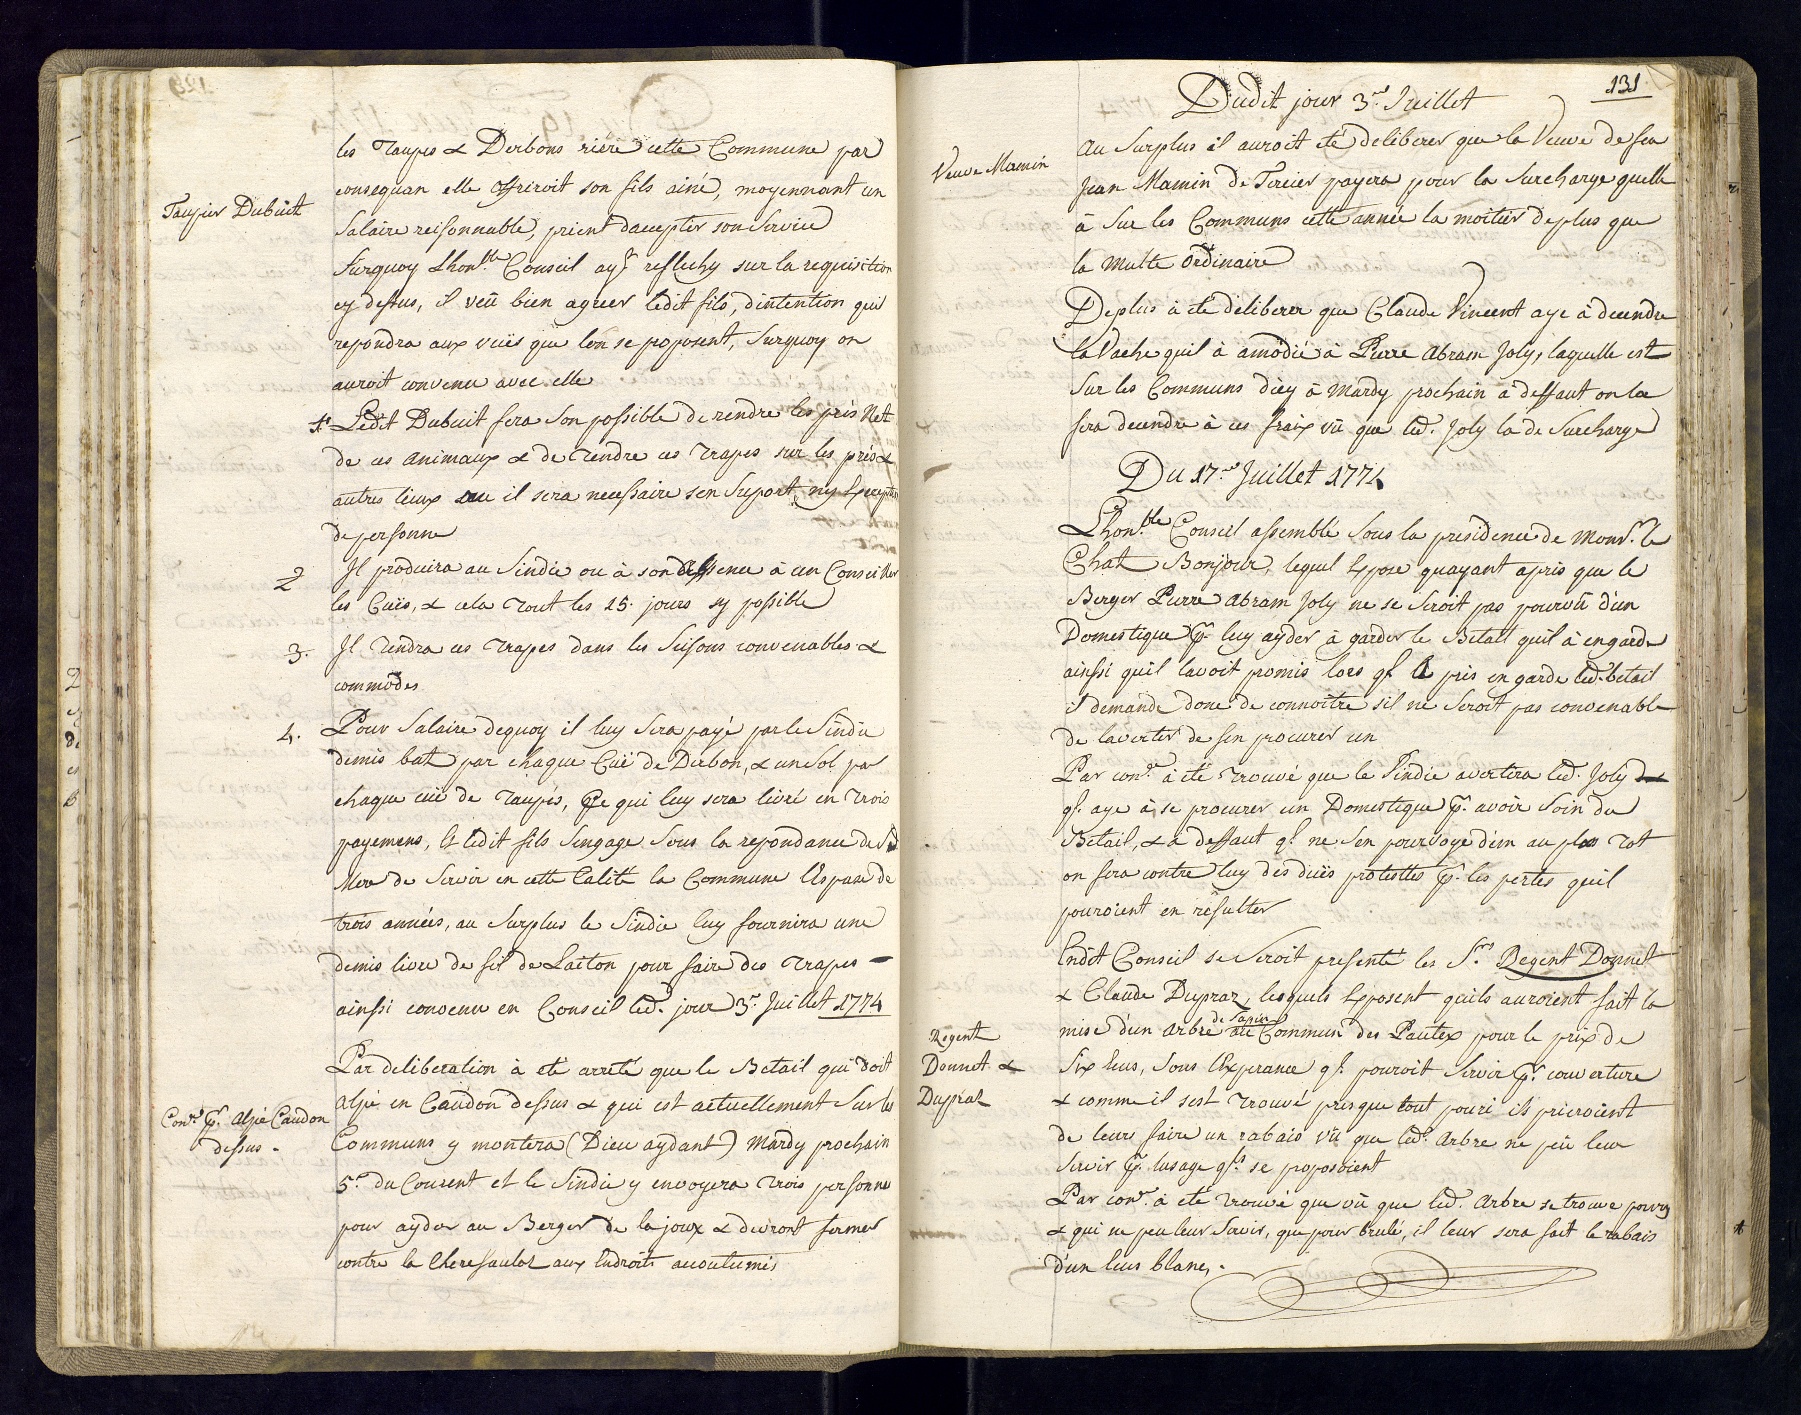 les Taupes & Derbons riére cette Commune par
consequan elle offriroit son fils ainé, moyennant un
Taupier Dubuit
Salaire reisonnable, prient daccepter son Service
Surquoy Lhon.ble Conseil ayt reflechy sur la requisition
cy dessus, il veû bien agreer ledit fils, dintention quil
repondra aux vuës que l'on se proposent, Surquoy on
auroit convenu avec elle
1.° Ledit Dubuit fera Son possible de rendre les prés Net
de ces animaux & de tendre ces trapes sur les prés &
autres lieux ou il sera necessaire sen Suport, ny Exception
de personne
2 Il produira au Sindic ou à son absence à un Conseiller
les Cuës, & cela tout les 15. jours sy possible
3. Il tendra ces trapes dans les Seisons convenables &
commodes
4. Pour Salaire dequoy il luy Sera payé par le Sindic
demis bat par chaque Cuë de Derbon, & un Sol par
chaque cuë de taupes, Ce qui luy sera livré en trois
payemens, Et ledit fils Sengage Sous la repondance de Sa
Mere de Servir en cette Calité la Commune l'Espace de
trois années, au Surplus le Sindic luy fournira une
demis livre de fil de Laiton pour faire des trapes —
ainsi convenu en Conseil led. jour 3.e Juillet 1774
Par deliberation à eté arreté que le Betail qui doit
alpé en Caudon dessus & qui est actuellement Sur les
Con.r p.r Alpé Caudon
dessus.
Communs y montera (Dieu aydant) Mardy prochain
5.e du Courent et le Sindic y envoyera trois personne
pour ayder au Berger de la joux & devront fermer
contre la Cheresaulaz aux Endroits accoutumés
131
Dudit jour 3.e Juillet
Veuve Mamin
Au Surplus il auroit eté deliberer que la Veuve de feu
Jean Mamin de Tercier payera pour la Surcharge quelle
à Sur les Communs cette année la moitier deplus que
la Multe Ordinaire
Deplus à eté deliberer que Claude Vincent aye à decendre
la Vache quil à amodié à Pierre Abram Joly, laquelle est
Sur les Communs dicy à Mardy prochain à deffaut on la
fera decendre à ces fraix vû que led. Joly la de Surcharge
Du 17.e Juillet 1774
Lhon.ble Conseil assemblé Sous la presidence de Mons.r le
Chat. Bonjour, lequel Expose quayant apris que le
Berger Pierre Abram Joly ne se Seroit pas pourvû d'un
Domestique p.r luy ayder à garder le Betail quil à engarde
ainssi quil l'avoit promis lors q.l à pris en garde led. betail
il demande donc de connoitre sil ne Seroit pas convenable
de laverter de sen procurer un
Par con.r à eté trouvé que le Sindic avertera led. Joly
q.l aye à se procurer un Domestique p.r avoir Soin du
Betail, & à deffaut q.l ne Sen pourvoye d'un au plus tot
on fera contre luy des duës protestes p.r les pertes quil
pouroient en résulter
Endit Conseil se Seroit presenté les S.rs Regent Donnet
& Claude Dupraz, lesquels Exposent quils auroient fait la
mise d'un arbre de Sapin au Commun des Pautex pour le prix de
Regent
Donnet &
Dupraz
Six leus, Sous l'Experance q.l pouroit Servir p.r couverture
& comme il sest trouvé presque tout pouri ils prieroient
de leurs faire un rabais vû que led. Arbre ne peû leur
Servir p.r lusage q.ls se proposoient
Par con.r à eté trouvé que vû que led. Arbre se trouve pourry
& qui ne peu leur Servir, que pour brulé, il leur sera fait le rabais
d'un leus blanc.